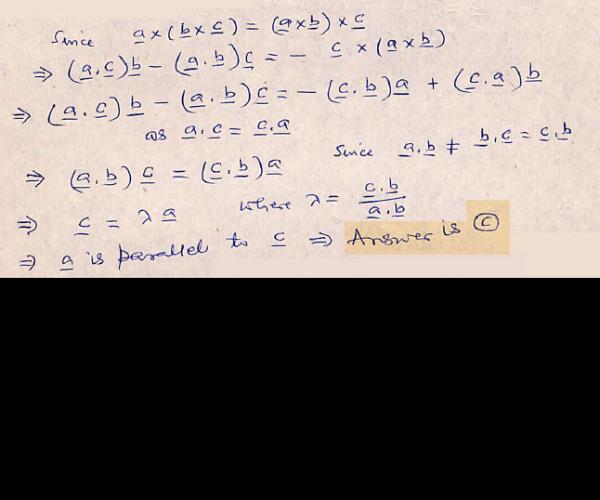 Since a × (b × c) = (a × b) × c
⇒ (a.c)b - (a.b)c = - c × (a × b)
⇒ (a.c)b - (a.b)c = - (c.b)a + (c.a)b
as a.c = c.a
Since a.b ≠ b.c = c.b
⇒ (a.b) c = (c.b)a
⇒ c = λ a where λ = c.b / a.b
⇒ a is parallel to c ⇒ Answer is Ⓒ